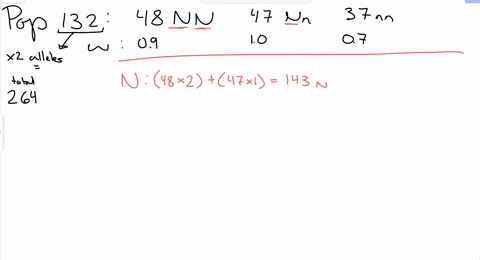 Pop 132: 48 NN 47 Nn 37 nn
w: 0.9 1.0 0.7
x2 alleles =
total
264
N: (48x2) + (47x1) = 143 N